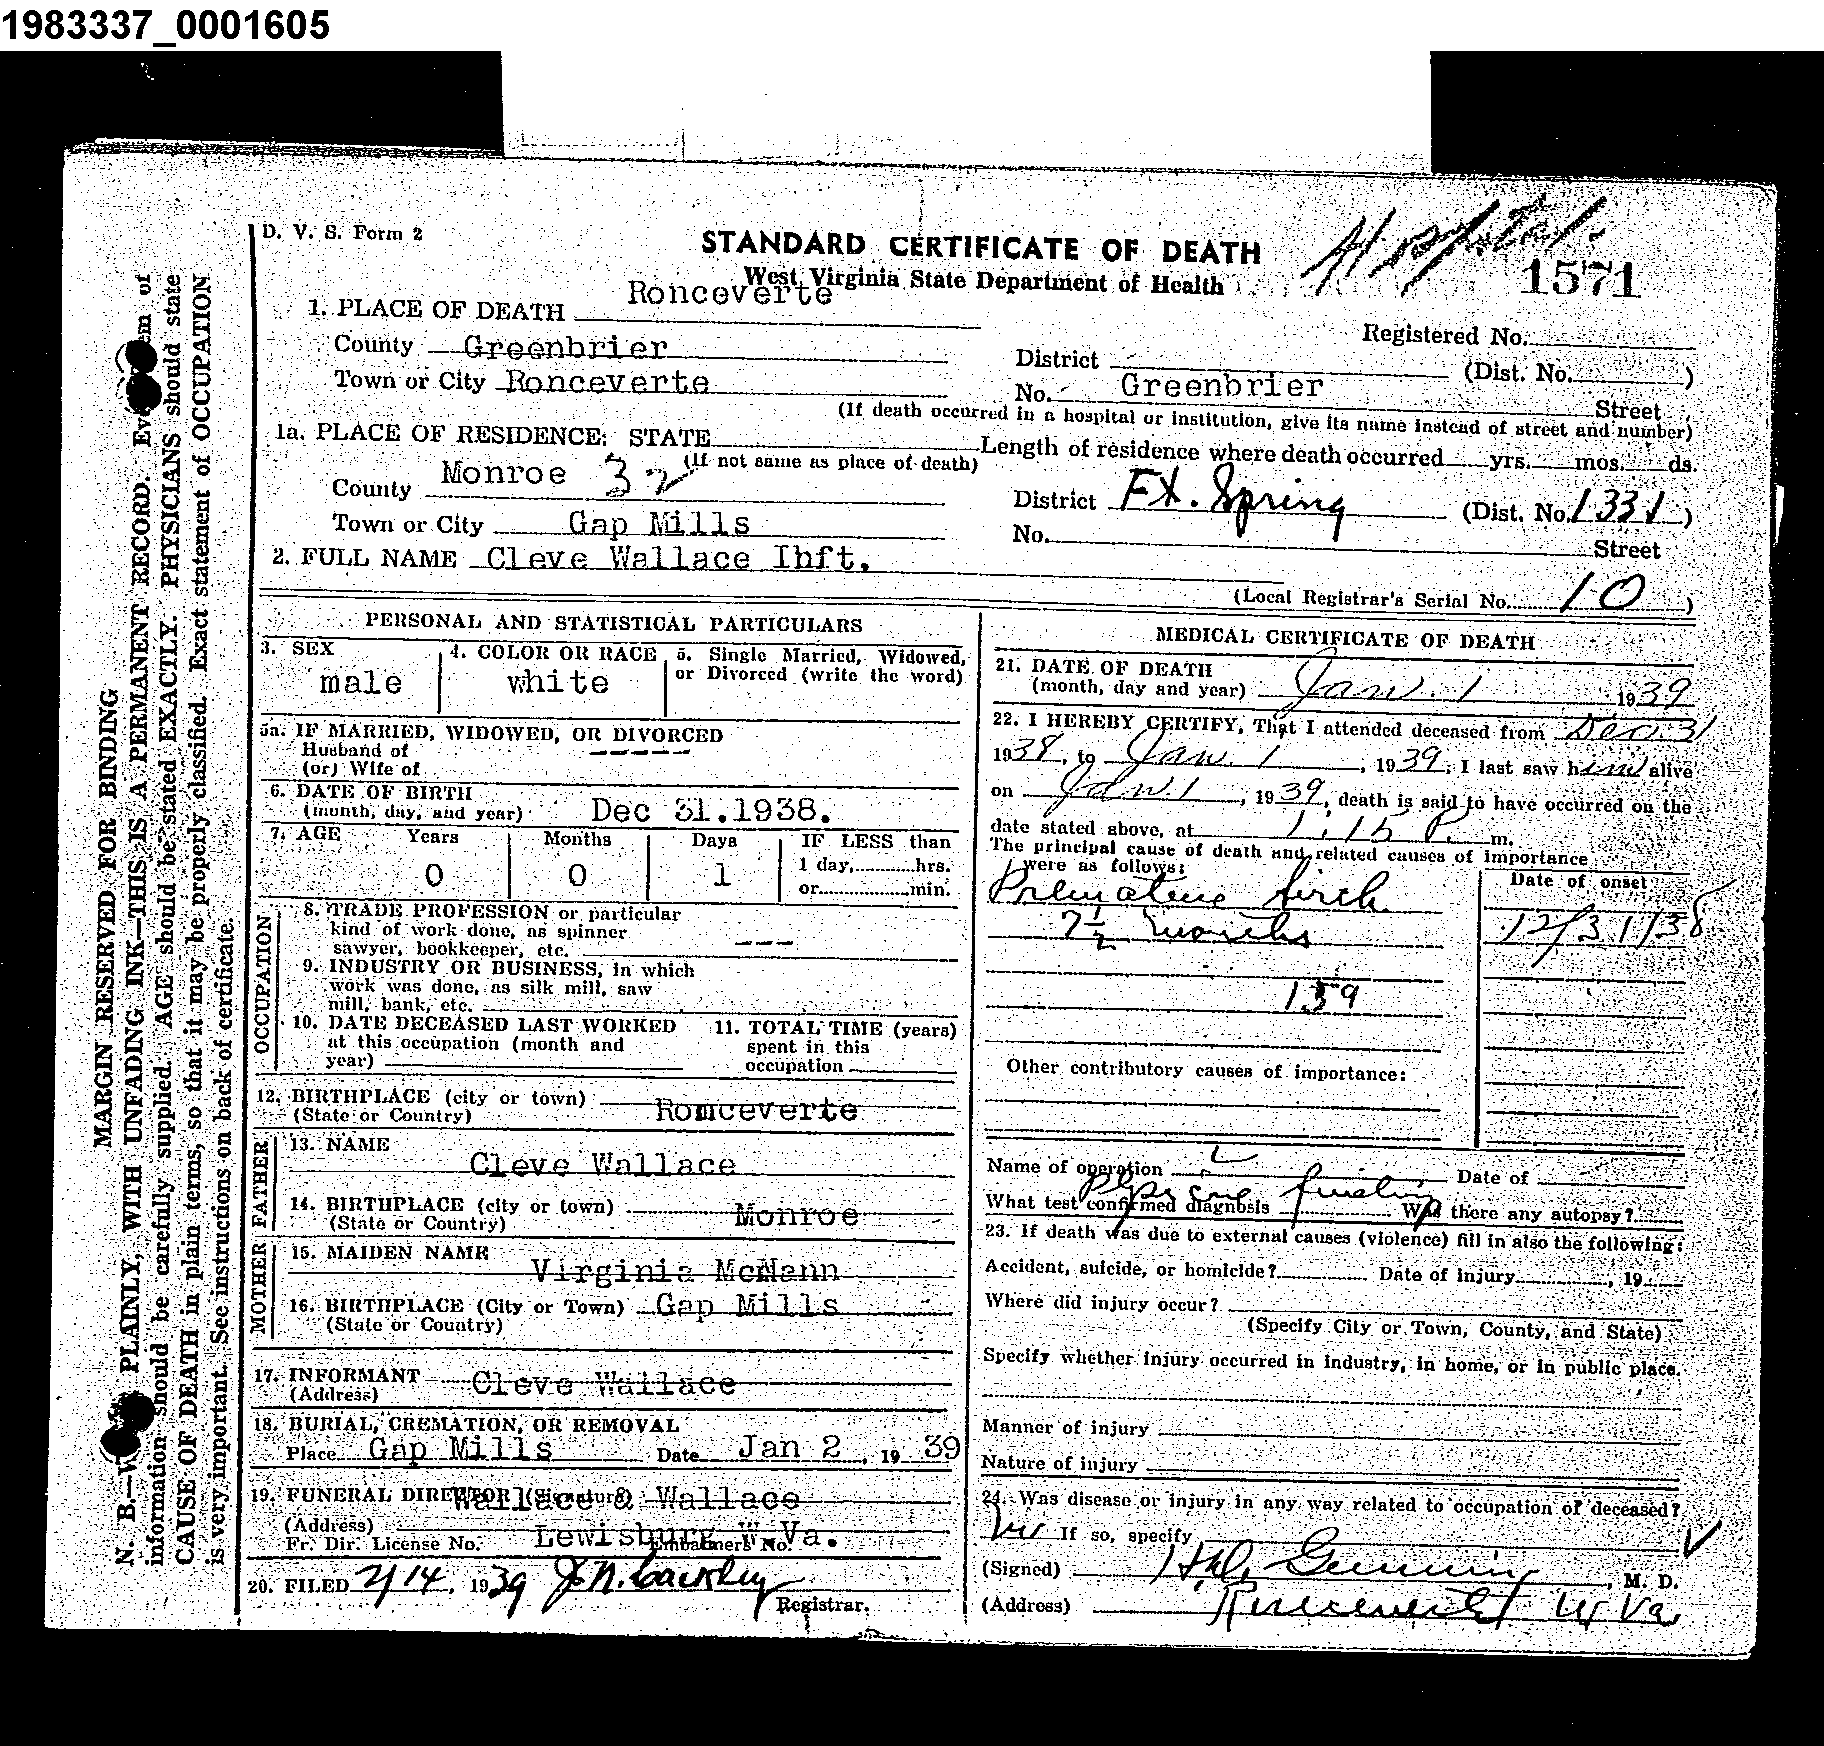 1983337_0001605
D. V. S. Form 2
STANDARD CERTIFICATE OF DEATH
Hospital
West Virginia State Department of Health
1571
1. PLACE OF DEATH Ronceverte
Registered No.
County Greenbrier
District (Dist. No. )
Town or City Ronceverte
No. Greenbrier Street
(If death occurred in a hospital or institution, give its name instead of street and number)
1a. PLACE OF RESIDENCE: STATE
(If not same as place of death)
Length of residence where death occurred yrs. mos. ds.
County Monroe 32
District Ft. Spring (Dist. No. 1331)
Town or City Gap Mills
No. Street
2. FULL NAME Cleve Wallace Ihft.
(Local Registrar's Serial No. 10)
PERSONAL AND STATISTICAL PARTICULARS
3. SEX
male
4. COLOR OR RACE
white
5. Single Married, Widowed,
or Divorced (write the word)
5a. IF MARRIED, WIDOWED, OR DIVORCED
Husband of -----
(or) Wife of
6. DATE OF BIRTH
(month, day, and year) Dec 31.1938.
7. AGE Years Months Days IF LESS than
1 day, hrs.
0 0 1 or min.
OCCUPATION
8. TRADE PROFESSION or particular
kind of work done, as spinner
sawyer, bookkeeper, etc. ---
9. INDUSTRY OR BUSINESS, in which
work was done, as silk mill, saw
mill, bank, etc.
10. DATE DECEASED LAST WORKED
at this occupation (month and
year)
11. TOTAL TIME (years)
spent in this
occupation
12. BIRTHPLACE (city or town) Romceverte
(State or Country)
FATHER
13. NAME
Cleve Wallace
14. BIRTHPLACE (city or town) Monroe
(State or Country)
MOTHER
15. MAIDEN NAME
Virginia McMann
16. BIRTHPLACE (City or Town) Gap Mills
(State or Country)
17. INFORMANT Cleve Wallace
(Address)
18. BURIAL, CREMATION, OR REMOVAL
Place Gap Mills Date Jan 2, 19 39
19. FUNERAL DIRECTOR (Signature) Wallace & Wallace
(Address) Lewisburg W.Va.
Fr. Dir. License No. Embalmers No.
20. FILED 2/14, 1939 J. N.
Registrar.
MEDICAL CERTIFICATE OF DEATH
21. DATE OF DEATH
(month, day and year) Jan. 1 1939
22. I HEREBY CERTIFY, That I attended deceased from Dec. 31
1938, to Jan. 1, 1939, I last saw him alive
on Jan 1, 1939, death is said to have occurred on the
date stated above, at 1:15 P. m.
The principal cause of death and related causes of importance
were as follows:
Date of onset
Premature birth
7½ months 12/31/38
159
Other contributory causes of importance:
Name of operation Date of
What test confirmed diagnosis Was there any autopsy?
23. If death was due to external causes (violence) fill in also the following:
Accident, suicide, or homicide? Date of injury , 19
Where did injury occur?
(Specify City or Town, County, and State)
Specify whether injury occurred in industry, in home, or in public place.
Manner of injury
Nature of injury
24. Was disease or injury in any way related to occupation of deceased?
If so, specify
(Signed) M. D.
(Address) Ronceverte W Va
MARGIN RESERVED FOR BINDING
N. B.—W PLAINLY, WITH UNFADING INK—THIS IS A PERMANENT RECORD. Ev em of
information should be carefully supplied. AGE should be stated EXACTLY. PHYSICIANS should state
CAUSE OF DEATH in plain terms, so that it may be properly classified. Exact statement of OCCUPATION
is very important. See instructions on back of certificate.